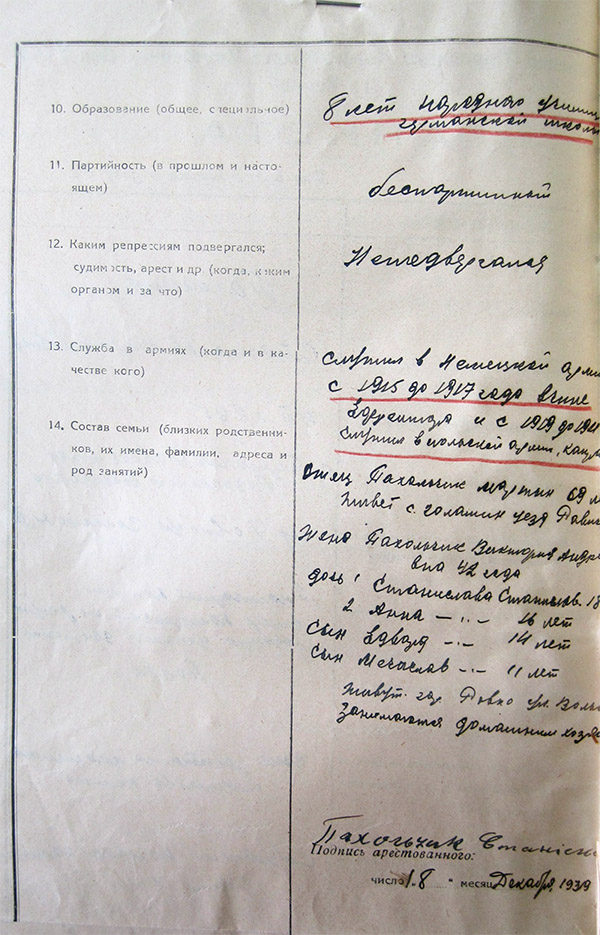 10. Образование (общее, специальное)
8 лет народное
германской школы
11. Партийность (в прошлом и насто-
ящем)
беспартийный
12. Каким репрессиям подвергался;
судимость, арест и др (когда, каким
органом и за что)
Неподвергался
13. Служба в армиях (когда и в ка-
честве кого)
служил в Немецкой арми
с 1915 до 1917 года в чине
и с 1919 до
служил в польской армии,
14. Состав семьи (близких родственни-
ков, их имена, фамилии, адреса и
род занятий)
Отец Пахольчик Мартин 69
живет с уезд
Жена Пахольчик Виктория Андре
вна 42 года
дочь 1 Станислава Станислав. 18
2 Анна —"— 16 лет
Сын Эдвард —"— 14 лет
Сын Мечислав —"— 11 лет
живут гор Ровно ул.
Занимаются домашним хозя
Пахольчик Станісла
Подпись арестованного:
число „18" месяц Декабря, 1939